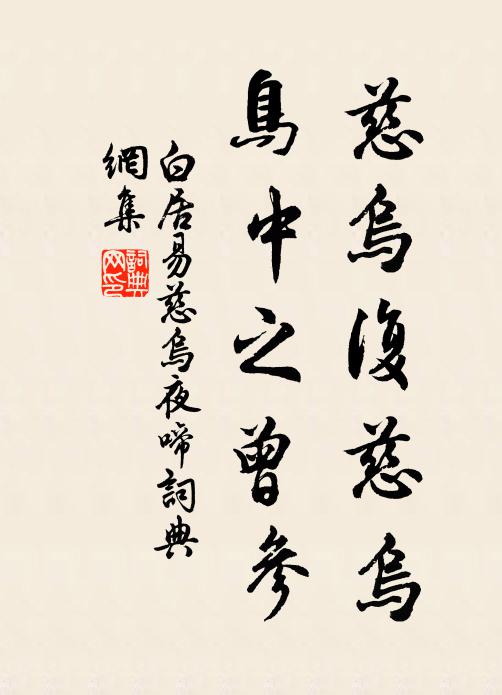 慈烏復慈烏
鳥中之曾參
白居易慈烏夜啼詞典
網集
詞典网印